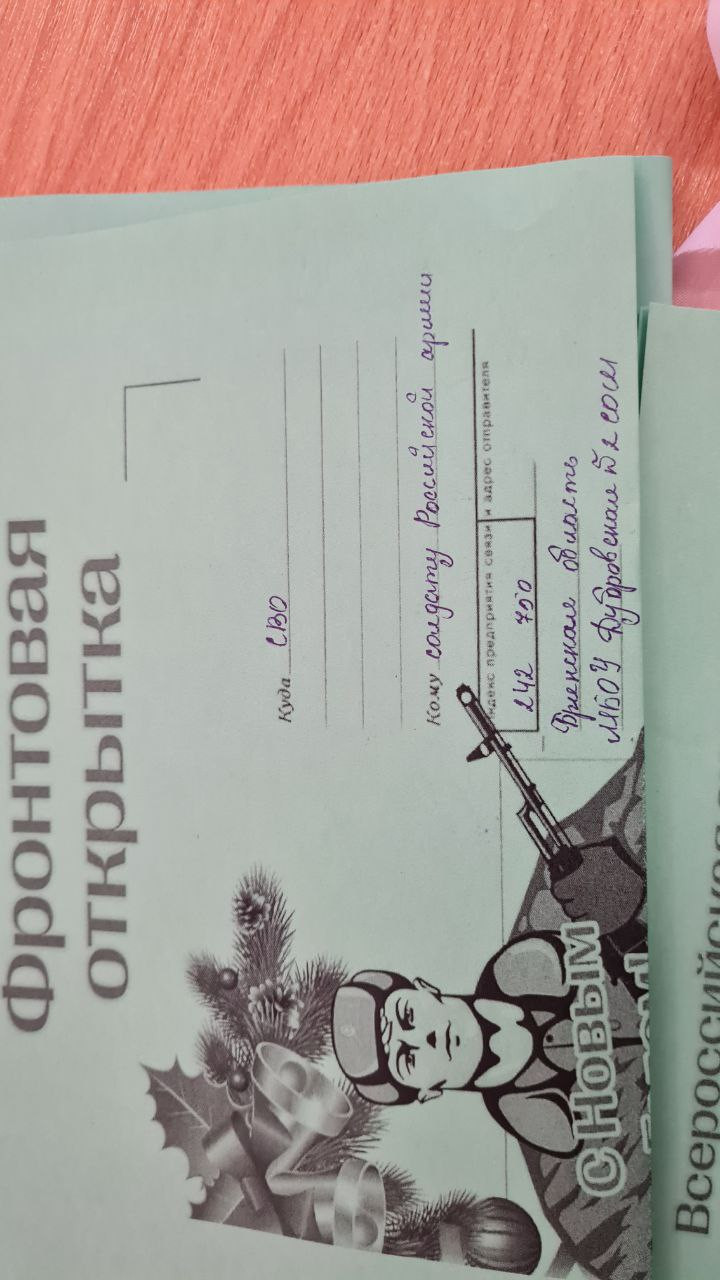 Фронтовая
открытка
Куда СВО
Кому солдату Российской армии
индекс предприятия связи и адрес отправителя
242 750
Брянская область
МБОУ Дубровская №2 СОШ
С Новым
годом!
Всероссийская